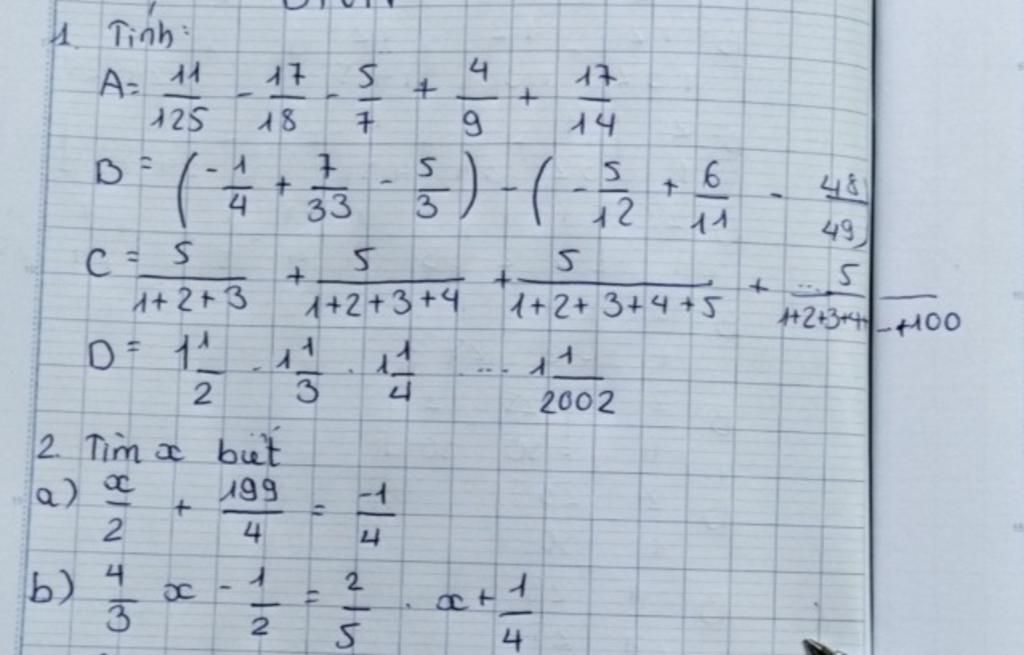 1. Tính:
A = 11/125 - 17/18 - 5/7 + 4/9 + 17/14
B = (-1/4 + 7/33 - 5/3) - (-5/12 + 6/11 - 48/49)
C = 5/(1+2+3) + 5/(1+2+3+4) + 5/(1+2+3+4+5) + ... 5/(1+2+3+4+...+100)
D = 1 1/2 . 1 1/3 . 1 1/4 ... 1 1/2002
2. Tìm x biết
a) x/2 + 199/4 = -1/4
b) 4/3 x - 1/2 = 2/5 . x + 1/4